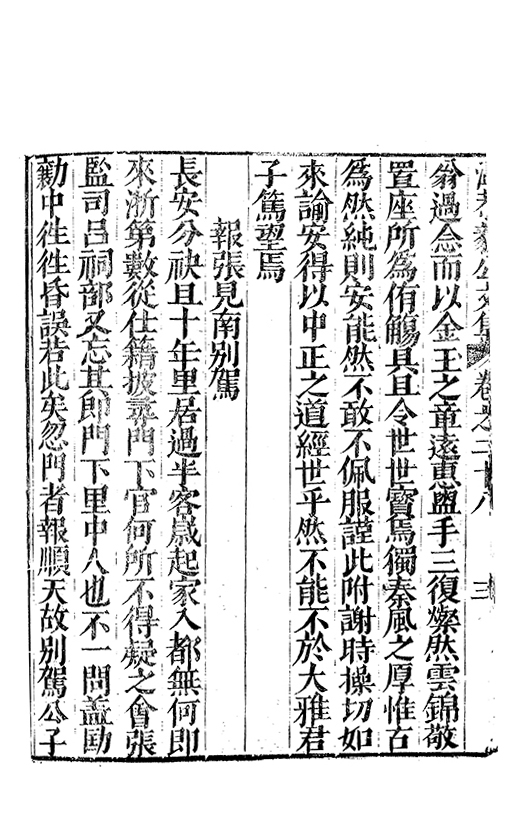 卷之二十八 三
翁過念而以金玉之章遠惠盥手三復燦然雲錦敬
置座所為侑觴具且令世世寳焉獨秦風之厚惟古
為然純則安能然不敢不佩服謹此附謝時操切如
來諭安得以中正之道經世乎然不能不於大雅君
子篤望焉
報張見南別駕
長安分袂且十年里居過半客歲起家入都無何即
來浙第數從仕籍披尋門下官何所不得凝之會張
監司呂祠部又忘其即門下里中人也不一問盖勩
勷中徃徃昏誤若此矣忽門者報順天故別駕公子